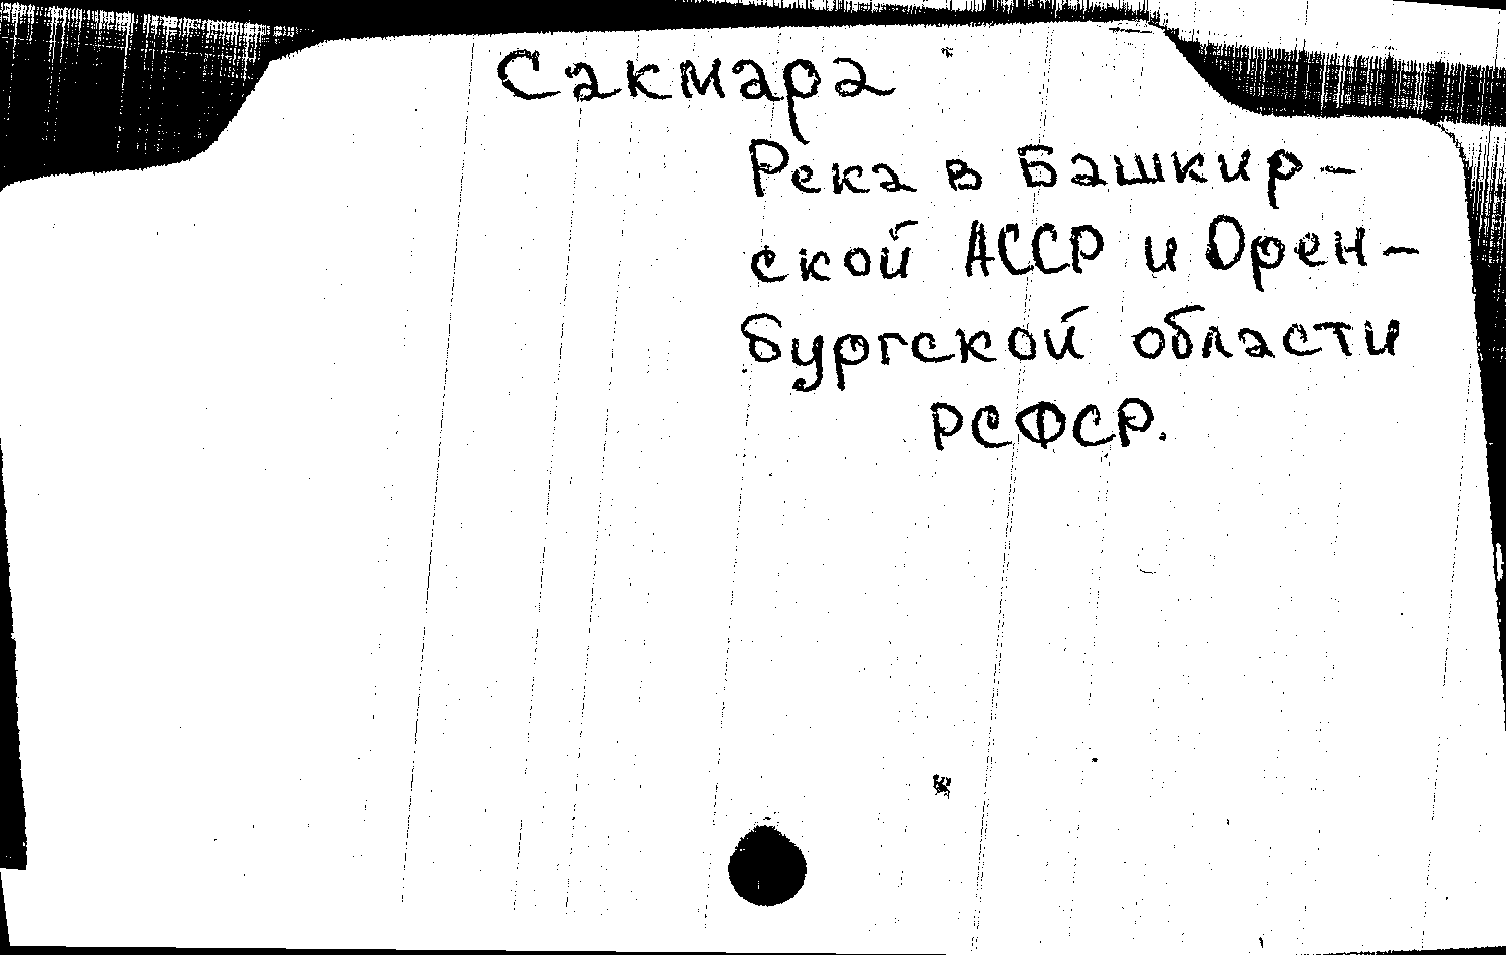 Сакмара
Река в Башкир-
ской АССР и Орен-
бургской области
РСФСР.